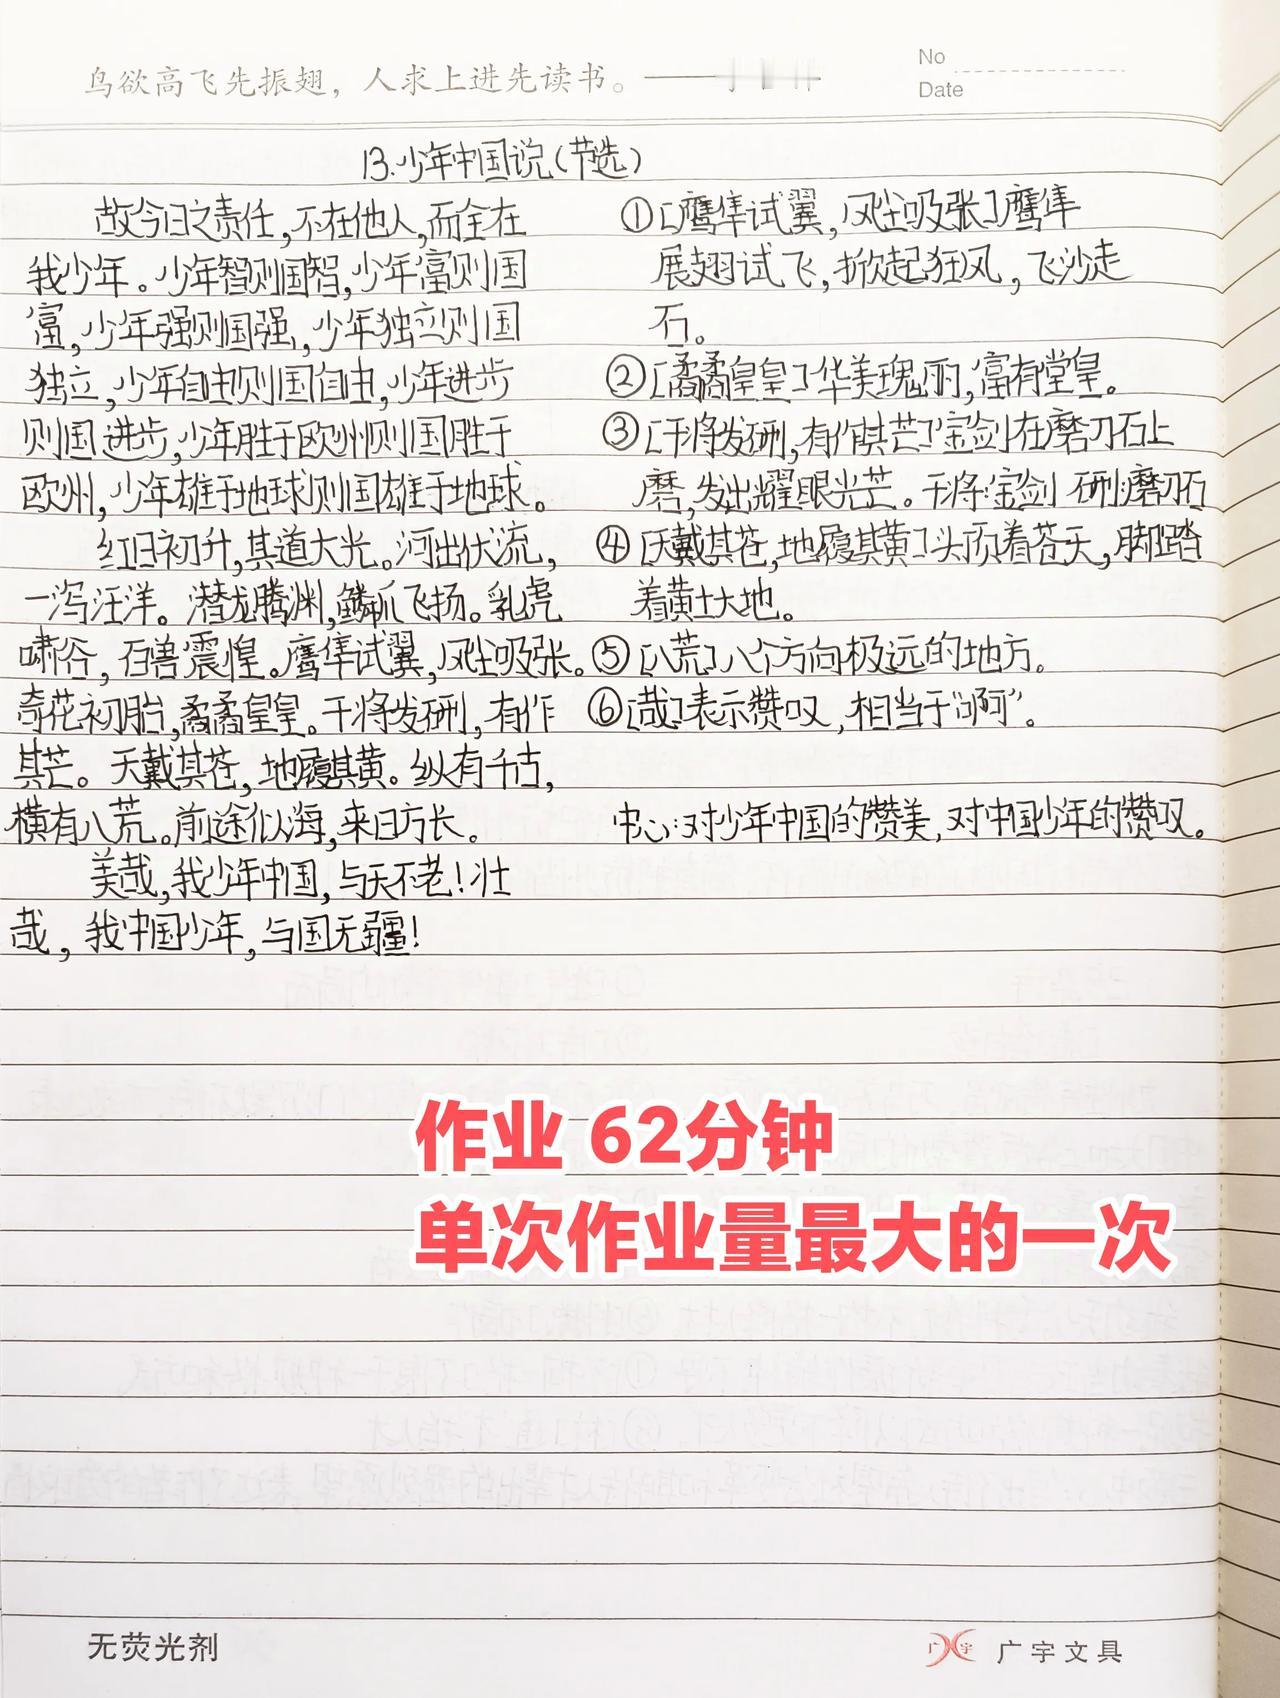 鸟欲高飞先振翅，人求上进先读书。——
No
Date
13.少年中国说(节选)
故今日之责任,不在他人,而全在
我少年。少年智则国智,少年富则国
富,少年强则国强,少年独立则国
独立,少年自由则国自由,少年进步
则国进步,少年胜于欧洲则国胜于
欧洲,少年雄于地球则国雄于地球。
红日初升,其道大光。河出伏流,
一泻汪洋。潜龙腾渊,鳞爪飞扬。乳虎
啸谷,百兽震惶。鹰隼试翼,风尘吸张。
奇花初胎,矞矞皇皇。干将发硎,有作
其芒。天戴其苍,地履其黄。纵有千古,
横有八荒。前途似海,来日方长。
美哉,我少年中国,与天不老!壮
哉,我中国少年,与国无疆!
①[鹰隼试翼,风尘吸张]鹰隼
展翅试飞,掀起狂风,飞沙走
石。
②[矞矞皇皇]华美瑰丽,富有堂皇。
③[干将发硎,有作其芒]宝剑在磨刀石上
磨,发出耀眼光芒。干将:宝剑 硎:磨刀石
④[天戴其苍,地履其黄]头顶着苍天,脚踏
着黄土大地。
⑤[八荒]八个方向极远的地方。
⑥[哉]表示赞叹,相当于“啊”。
中心:对少年中国的赞美,对中国少年的赞叹。
作业 62分钟
单次作业量最大的一次
无荧光剂
广宇
广宇文具